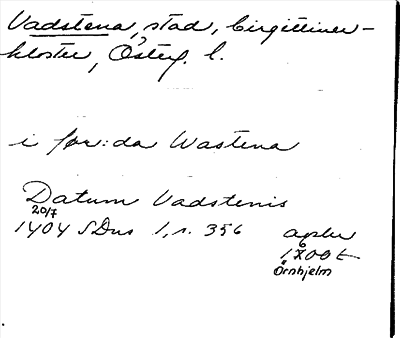 Vadstena, stad, birgittiner-
kloster, Österg. l.
i for:da Wastena
Datum Vadstenis
20/7
1404 SDns 1, s. 356 aphr
1600 t
Örnhjelm